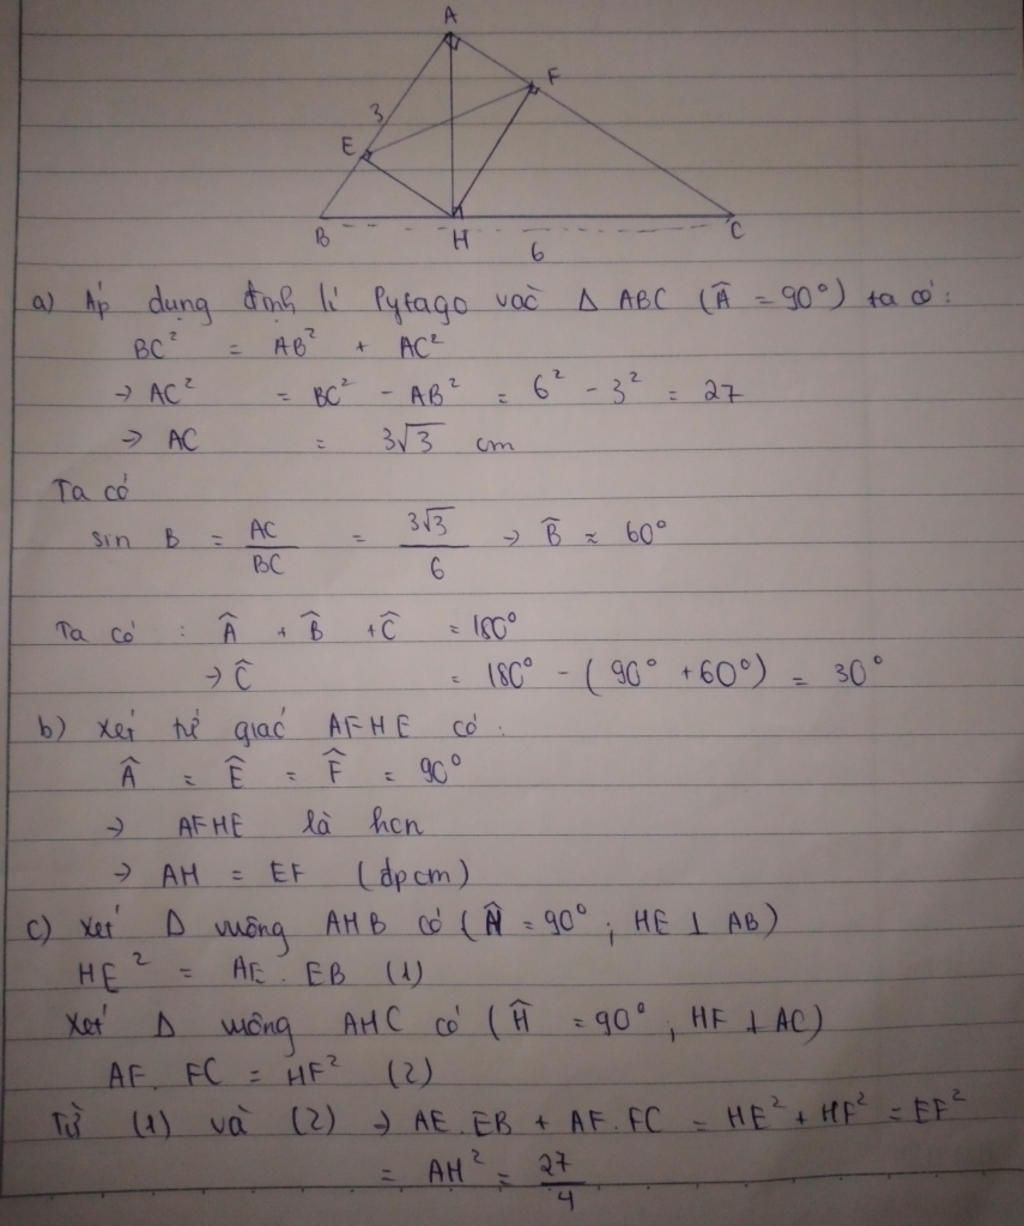 A
F
3
E
B
H
6
C
a) Áp dụng định lí Pytago vào Δ ABC (Â = 90°) ta có:
BC² = AB² + AC²
→ AC² = BC² - AB² = 6² - 3² = 27
→ AC = 3√3 cm
Ta có
sin B = AC/BC = 3√3/6 → B̂ ≈ 60°
Ta có : Â + B̂ + Ĉ = 180°
→ Ĉ = 180° - (90° + 60°) = 30°
b) Xét tứ giác AFHE có:
Â = Ê = F̂ = 90°
→ AFHE là hcn
→ AH = EF (đpcm)
c) Xét Δ vuông AHB có (Ĥ = 90° ; HE ⊥ AB)
HE² = AE . EB (1)
Xét Δ vuông AHC có (Ĥ = 90° ; HF ⊥ AC)
AF . FC = HF² (2)
Từ (1) và (2) → AE . EB + AF . FC = HE² + HF² = EF²
= AH² = 27/4